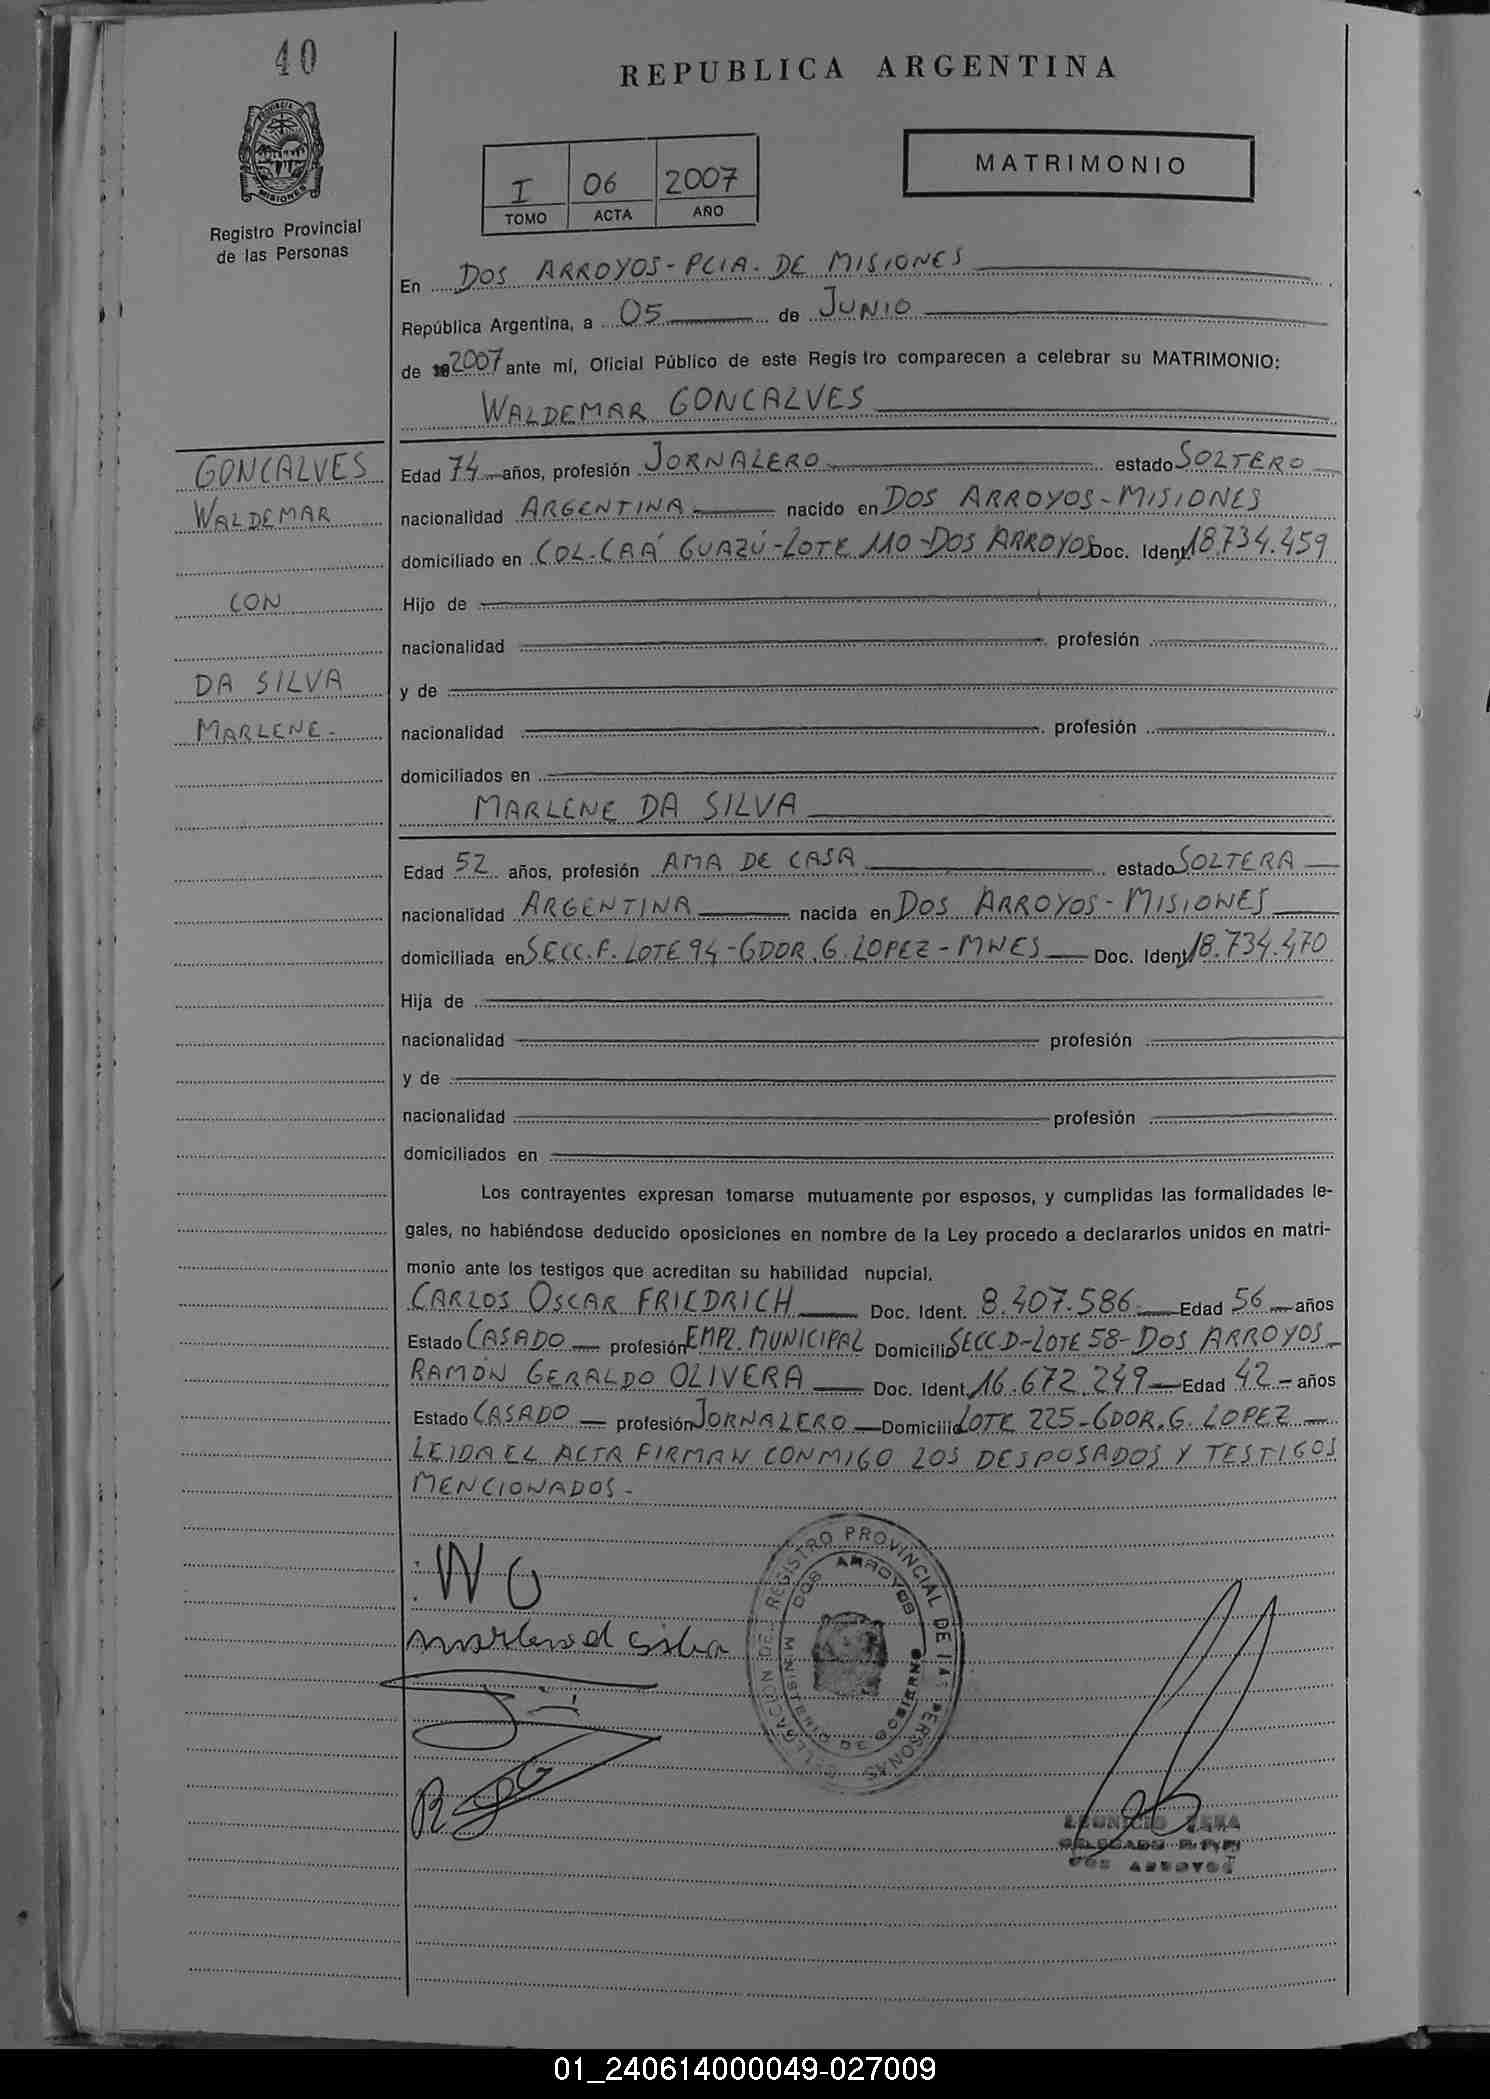 40
REPUBLICA ARGENTINA
PROVINCIA DE MISIONES
Registro Provincial
de las Personas
I 06 2007
TOMO ACTA AÑO
MATRIMONIO
En DOS ARROYOS - PCIA. DE MISIONES
República Argentina, a 05 de JUNIO
de 2007 ante mí, Oficial Público de este Registro comparecen a celebrar su MATRIMONIO:
WALDEMAR GONCALVES
GONCALVES
WALDEMAR
CON
DA SILVA
MARLENE -
Edad 74 años, profesión JORNALERO estado SOLTERO
nacionalidad ARGENTINA nacido en DOS ARROYOS - MISIONES
domiciliado en COL. CAÁ GUAZÚ - LOTE 110 - DOS ARROYOS Doc. Ident. 18.734.459
Hijo de
nacionalidad profesión
y de
nacionalidad profesión
domiciliados en
MARLENE DA SILVA
Edad 52 años, profesión AMA DE CASA estado SOLTERA
nacionalidad ARGENTINA nacida en DOS ARROYOS - MISIONES
domiciliada en SECC. F. LOTE 94 - GDOR. G. LOPEZ - MNES Doc. Ident. 18.734.470
Hija de
nacionalidad profesión
y de
nacionalidad profesión
domiciliados en
Los contrayentes expresan tomarse mutuamente por esposos, y cumplidas las formalidades le-
gales, no habiéndose deducido oposiciones en nombre de la Ley procedo a declararlos unidos en matri-
monio ante los testigos que acreditan su habilidad nupcial.
CARLOS OSCAR FRIEDRICH Doc. Ident. 8.407.586 Edad 56 años
Estado CASADO profesión EMPL. MUNICIPAL Domicilio SECC D - LOTE 58 - DOS ARROYOS
RAMÓN GERALDO OLIVERA Doc. Ident. 16.672.249 Edad 42 años
Estado CASADO profesión JORNALERO Domicilio LOTE 225 - GDOR. G. LOPEZ
LEIDA EL ACTA FIRMAN CONMIGO LOS DESPOSADOS Y TESTIGOS
MENCIONADOS -
W G
DELEGACION DE REGISTRO PROVINCIAL DE LAS PERSONAS
DOS ARROYOS
MINISTERIO DE GOBIERNO
DOS ARROYOS
01_240614000049-027009